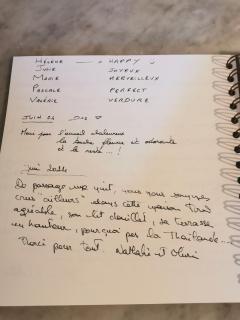 HÉLÈNE → HAPPY
JULIE JOYEUX
MARIE MERVEILLEUX
PASCALE PERFECT
VALÉRIE VERDURE
JUIN
Merci pour l'accueil chaleureux
la fleurie et odorante
et le reste...!
De passage une nuit, nous nous sommes
crus "ailleurs" dans cette maison
agréable, son lit douillet, sa terrasse
en hauteur, pourquoi pas la Thaïlande...
Merci pour tout. Nathalie et